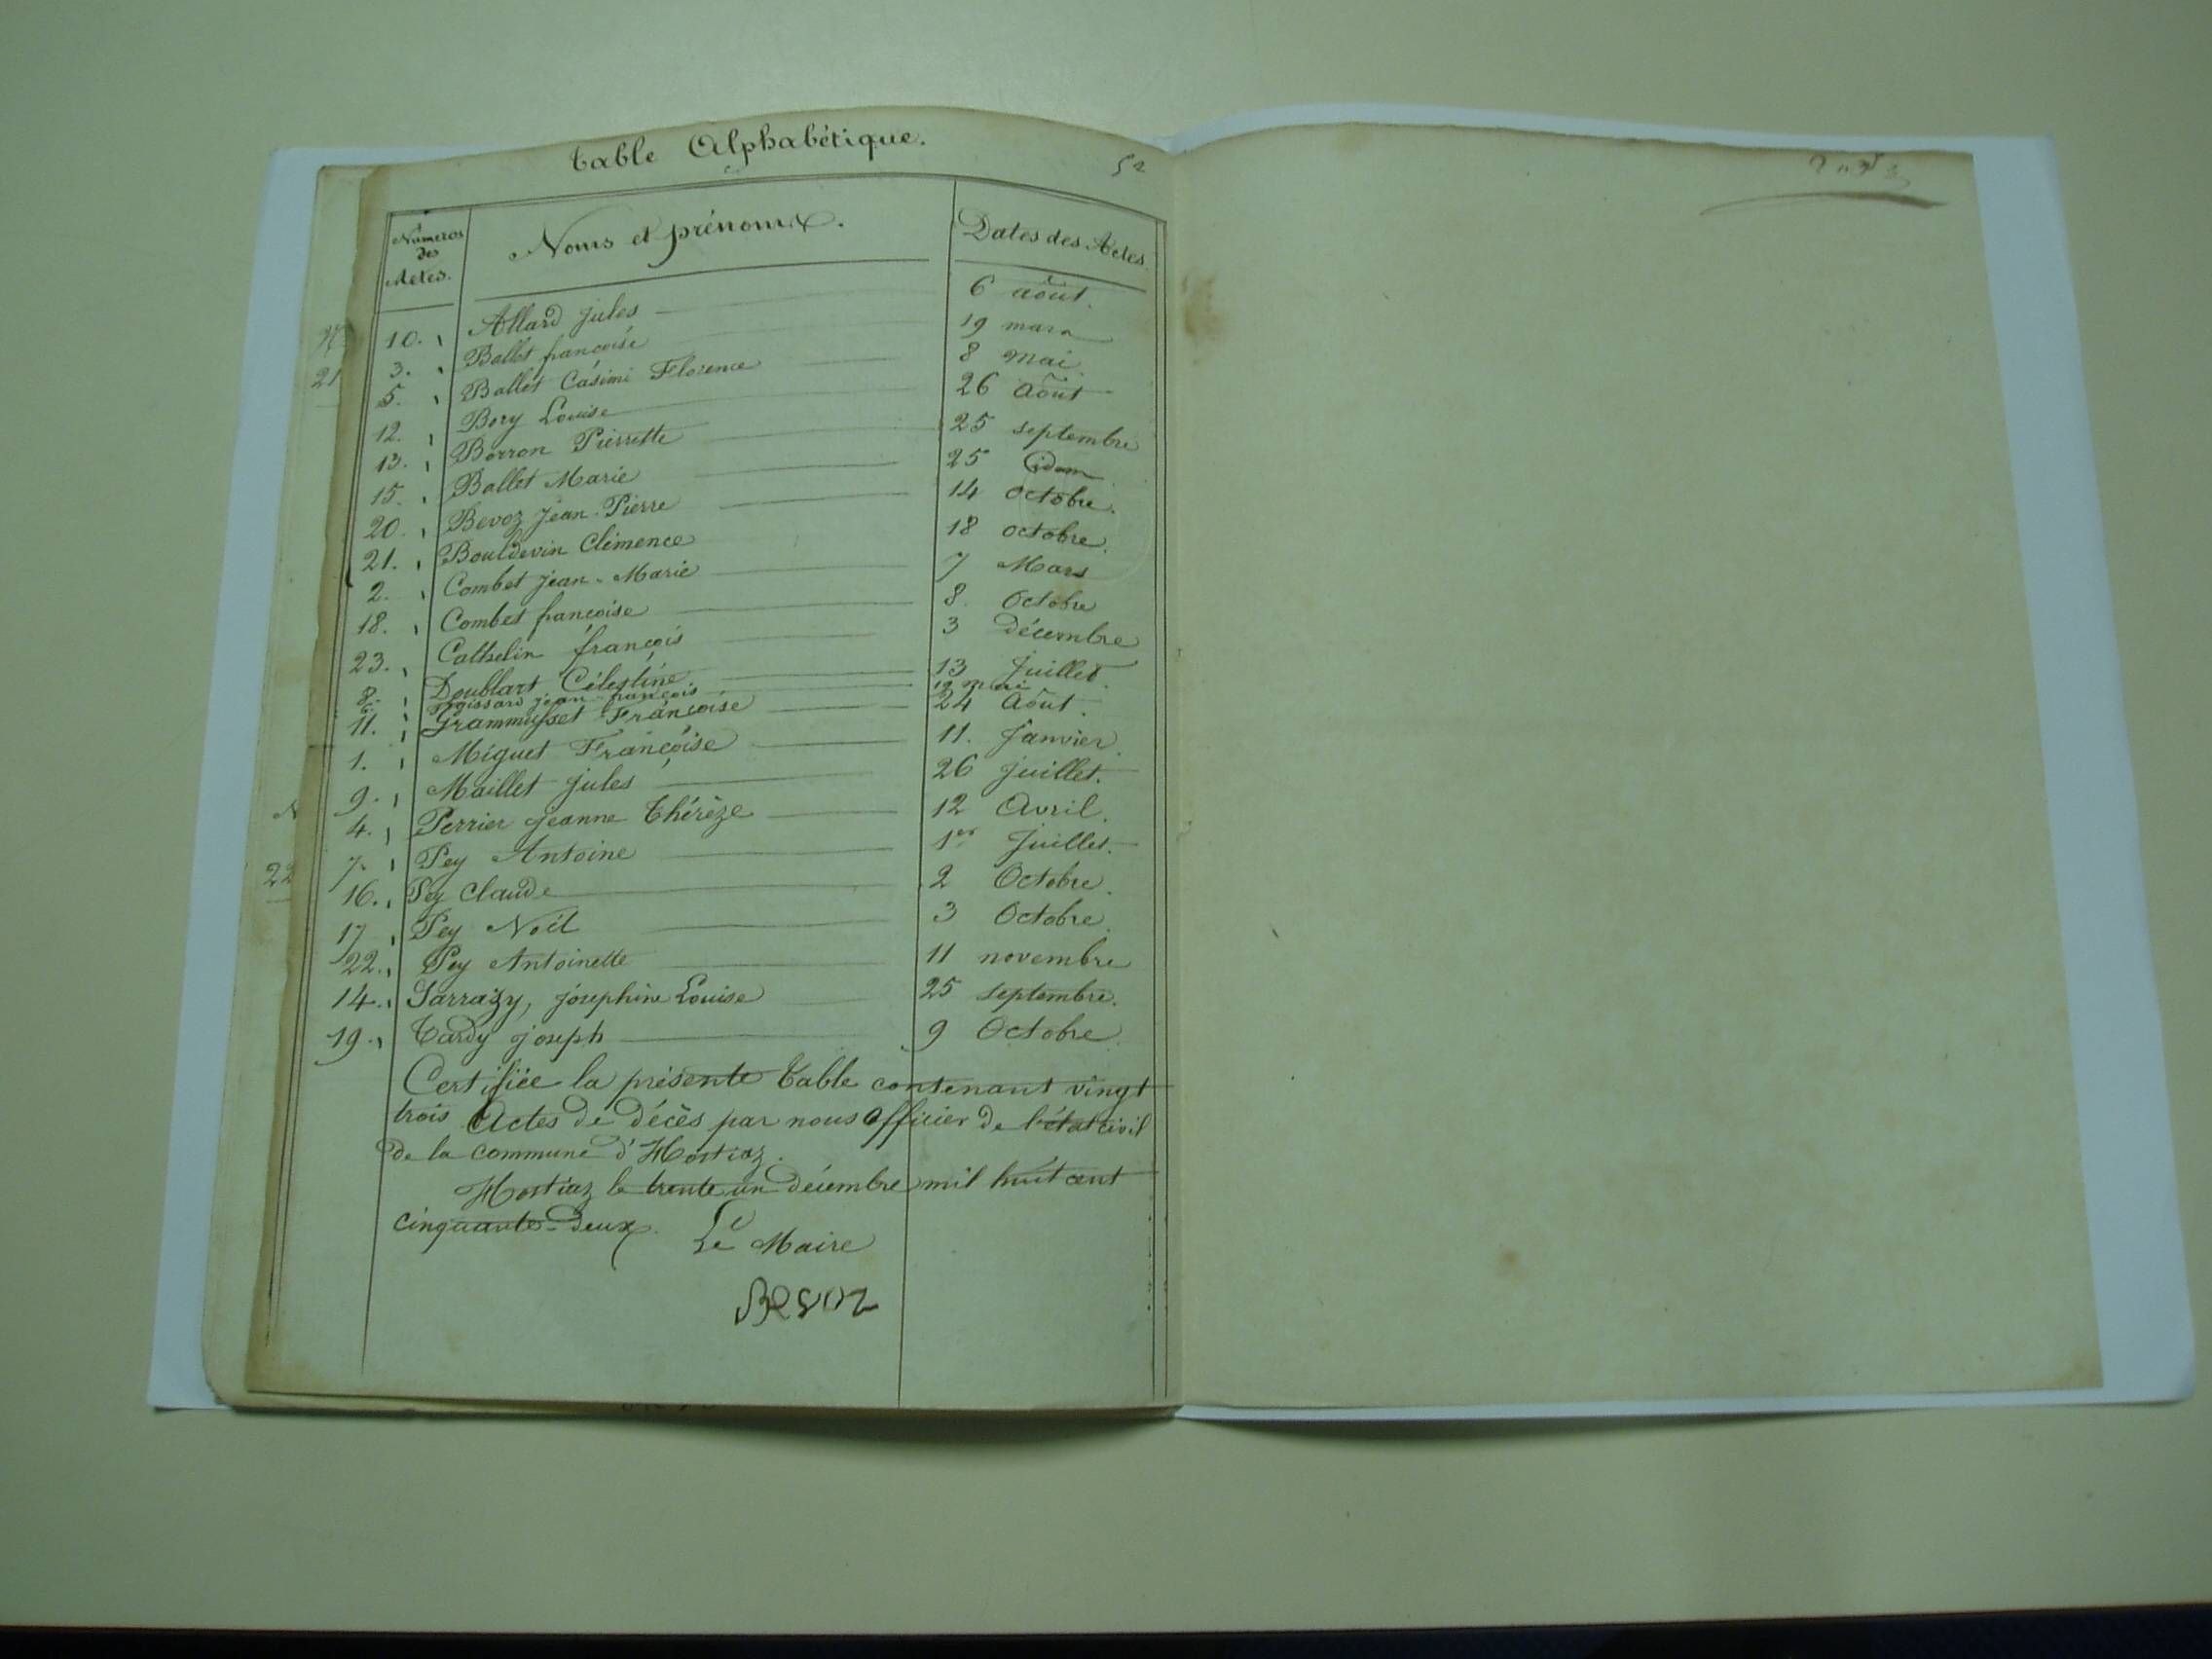 Table Alphabétique.
52
Numéros des Actes. Noms et prénoms. Dates des Actes.
10. Allard jules 6 août.
3. Ballet françoise 19 mars
5. Ballet Casimi Florence 8 mai.
12. Bory Louise 26 Août
13. Borron Pierrette 25 septembre
15. Ballet Marie 25 idem
20. Bevoz jean-Pierre 14 octobre.
21. Bouldevin Clémence 18 octobre.
2. Combet jean-Marie 7 Mars
18. Combet françoise 8. Octobre
23. Cathelin françois 3 décembre
8. Doublart Célestine 13 Juillet.
6. jean-françois 19 mai
11. Grammusset Françoise 24 Août.
1. Miguet Françoise 11. Janvier.
9. Maillet jules 26 juillet.
4. Perrier jeanne Thérèze 12 Avril.
7. Pey Antoine 1er Juillet.
16. Pey Claude 2 Octobre.
17 Pey Noël 3 Octobre.
22. Pey Antoinette 11 novembre
14. Sarrazy, joséphine Louise 25 septembre.
19. Tardy joseph 9 Octobre.
Certifiée la présente table contenant vingt
trois Actes de décès par nous officier de l'état civil
de la commune d'Hostiaz.
Hostiaz le trente un décembre mil huit cent
cinquante-deux.
Le Maire
Bevoz
21
22